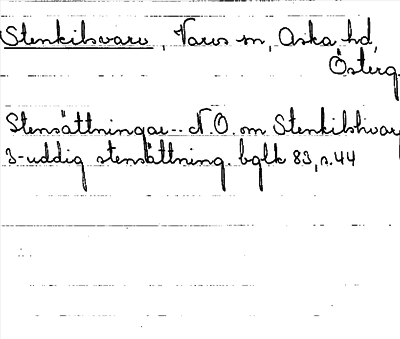 Stenkilsvarv, Varvs sn, Aska hd,
Österg.
Stensättningar.. N.O. om Stenkilshvarf
3-uddig stensättning. bglk 83, s. 44